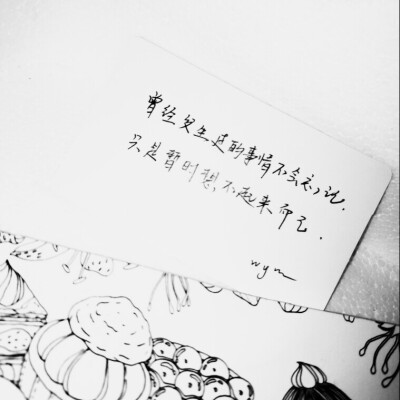 曾经发生过的事情不会忘记.
只是暂时想不起来而已.
wym